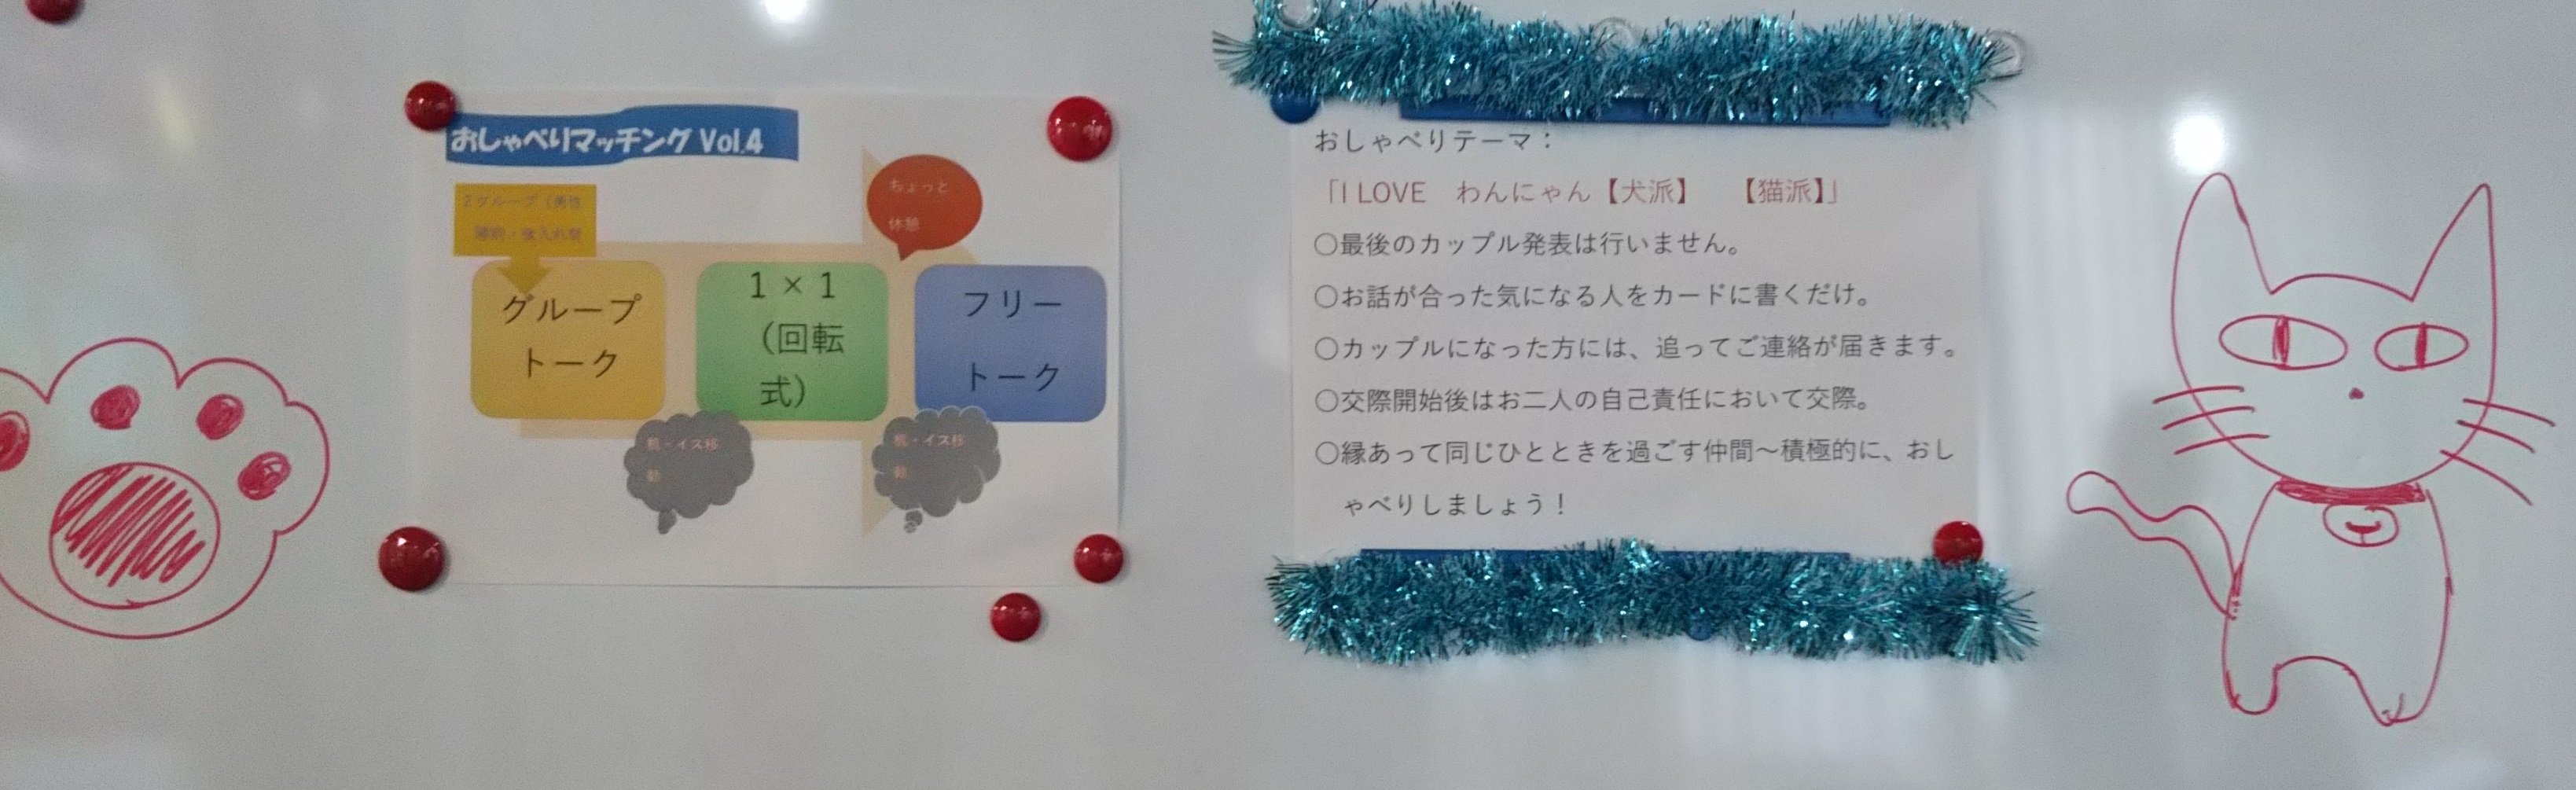 おしゃべりマッチング Vol.4
2グループ（男性
ちょっと
休憩
グループ
トーク
1 × 1
（回転
式）
フリー
トーク
机・イス移
動
机・イス移
動
おしゃべりテーマ：
「I LOVE　わんにゃん【犬派】　【猫派】」
〇最後のカップル発表は行いません。
〇お話が合った気になる人をカードに書くだけ。
〇カップルになった方には、追ってご連絡が届きます。
〇交際開始後はお二人の自己責任において交際。
〇縁あって同じひとときを過ごす仲間～積極的に、おし
ゃべりしましょう！